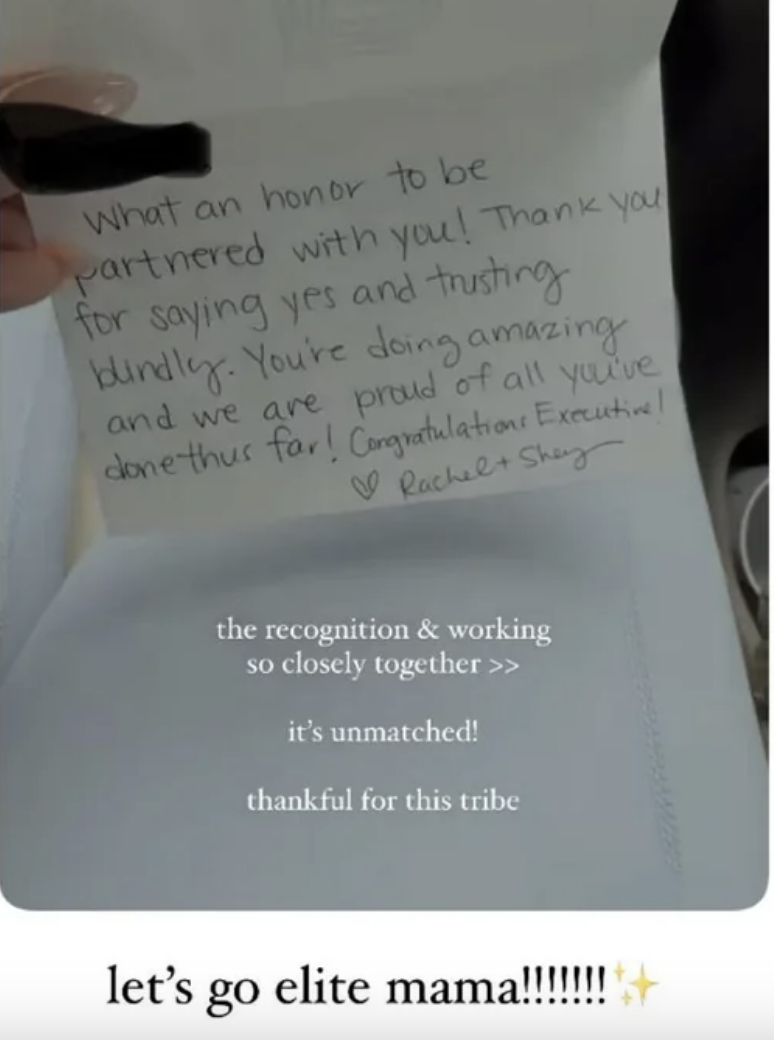 What an honor to be
partnered with you! Thank you
for saying yes and trusting
blindly. You're doing amazing
and we are proud of all you've
done thus far! Congratulations Executive!
♡ Rachel + Shay
the recognition & working
so closely together >>
it's unmatched!
thankful for this tribe
let's go elite mama!!!!!!!✨